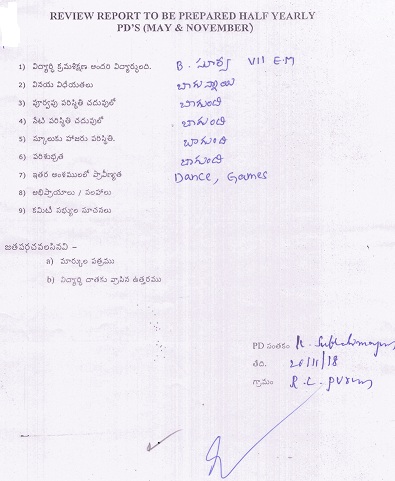 REVIEW REPORT TO BE PREPARED HALF YEARLY
PD'S (MAY & NOVEMBER)
1) విద్యార్థి క్రమశిక్షణ అందరి విద్యార్థులది. B. సూర్య VII E.M
2) వినయ విధేయతలు బాగున్నాయి
3) పూర్వపు పరిస్థితి చదువులో బాగుంది
4) నేటి పరిస్థితి చదువులో బాగుంది
5) స్కూలుకు హాజరు పరిస్థితి. బాగుంది
6) పరిశుభ్రత బాగుంది
7) ఇతర అంశములలో ప్రావీణ్యత Dance, Games
8) అభిప్రాయాలు / సలహాలు
9) కమిటి సభ్యుల సూచనలు
జతపరచవలసినవి –
a) మార్కుల పత్రము
b) విద్యార్థి దాతకు వ్రాసిన ఉత్తరము
PD సంతకం
తేది. 26/11/18
గ్రామం R.C.